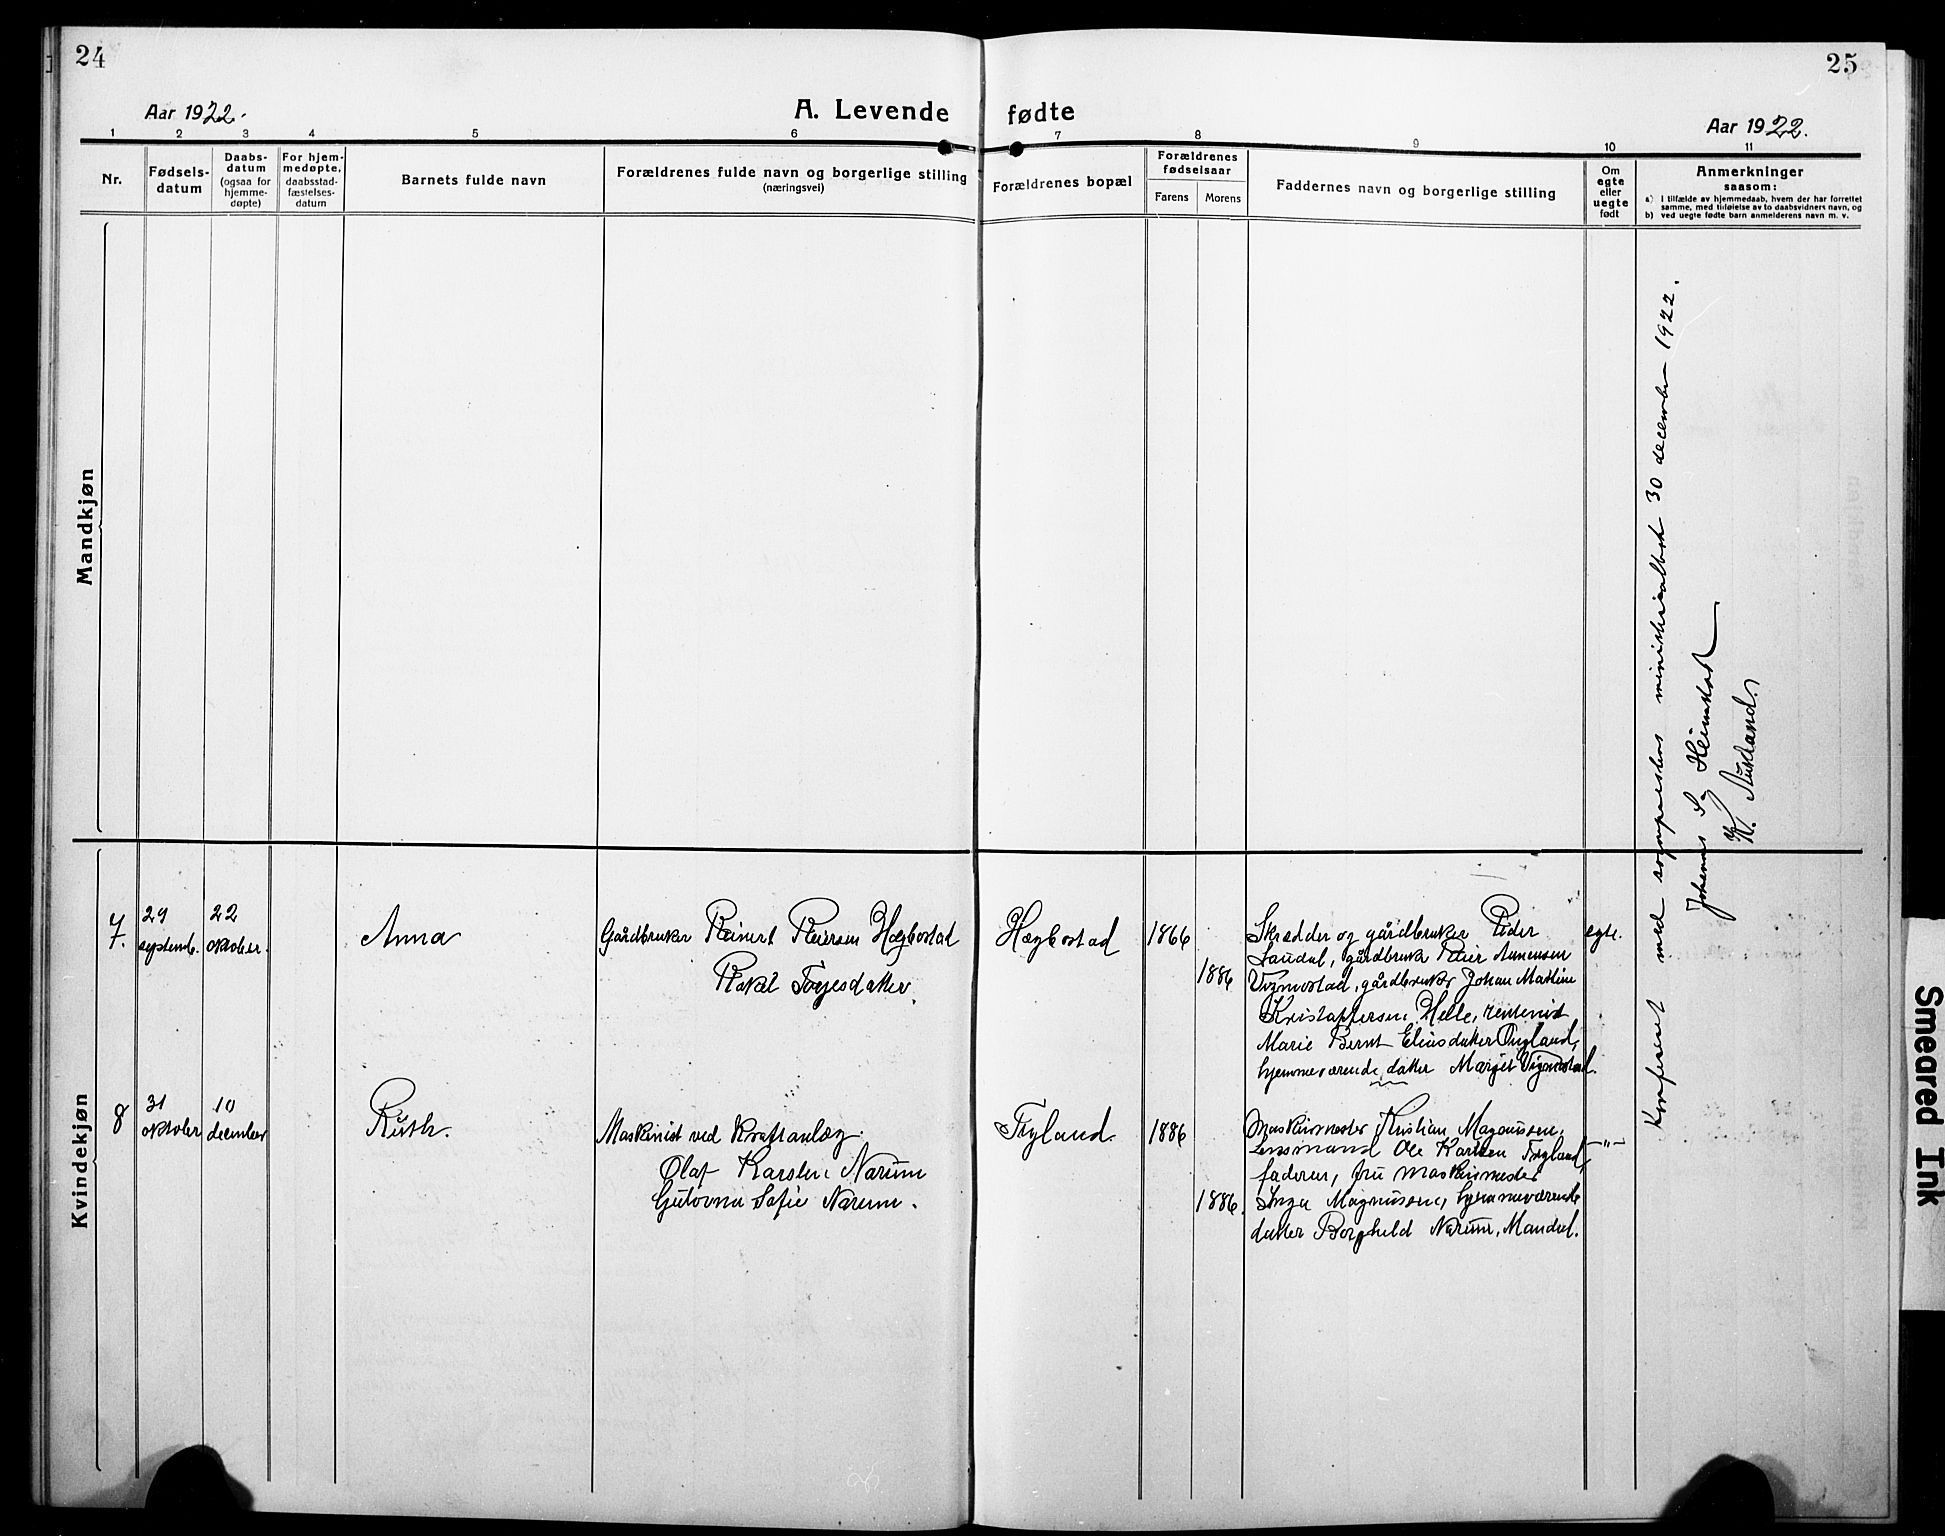 24
25
Aar 1922.
A. Levende fødte
Aar 1922.
1 2 3 4 5 6 7 8 9 10 11
Nr.
Fødsels-
datum
Daabs-
datum
(ogsaa for
hjemme-
døpte)
For hjem-
medøpte,
daabsstad-
fæstelses-
datum
Barnets fulde navn
Forældrenes fulde navn og borgerlige stilling
(næringsvei)
Forældrenes bopæl
Forældrenes
fødselsaar
Farens
Morens
Faddernes navn og borgerlige stilling
Om
egte
eller
uegte
født
Anmerkninger
saasom:
a) I tilfælde av hjemmedaab, hvem der har forrettet
samme, med tilføielse av to daabsvidners navn, og
b) ved uegte fødte barn anmelderens navn m. v.
Mandkjøn
Konferert med sogneprestens ministerialbok 30 december 1922.
Johannes S. Heimstad
K.
Kvindekjøn
7.
29
septemb.
22
oktober.
Anna
Gårdbruker Reinert Reiersen Hægbostad
Rakel Torjesdatter.
Hægbostad
1866
1886
Skrædder og gårdbruker Peder
Laudal, gårdbruker Reier
Vigmostad, gårdbruker Johan Mathias
Kristoffersen Helle, rentenist
Marie Bernt Eliasdatter
hjemmeværende datter Margit Vigmostad.
egte.
8
31
oktober
10
december
Ruth.
Maskinist ved Kraftanlæg
Olaf Karsten Narum
Sofie Narum.
Tryland
1886
1886.
Maskinmester Kristian Magnussen,
Lensmand Ole Karlsen Tryland,
faderen, fru maskinmester
Inga Magnussen, hjemmeværende
datter Borghild Narum, Mandal.
—"—
Smeared Ink